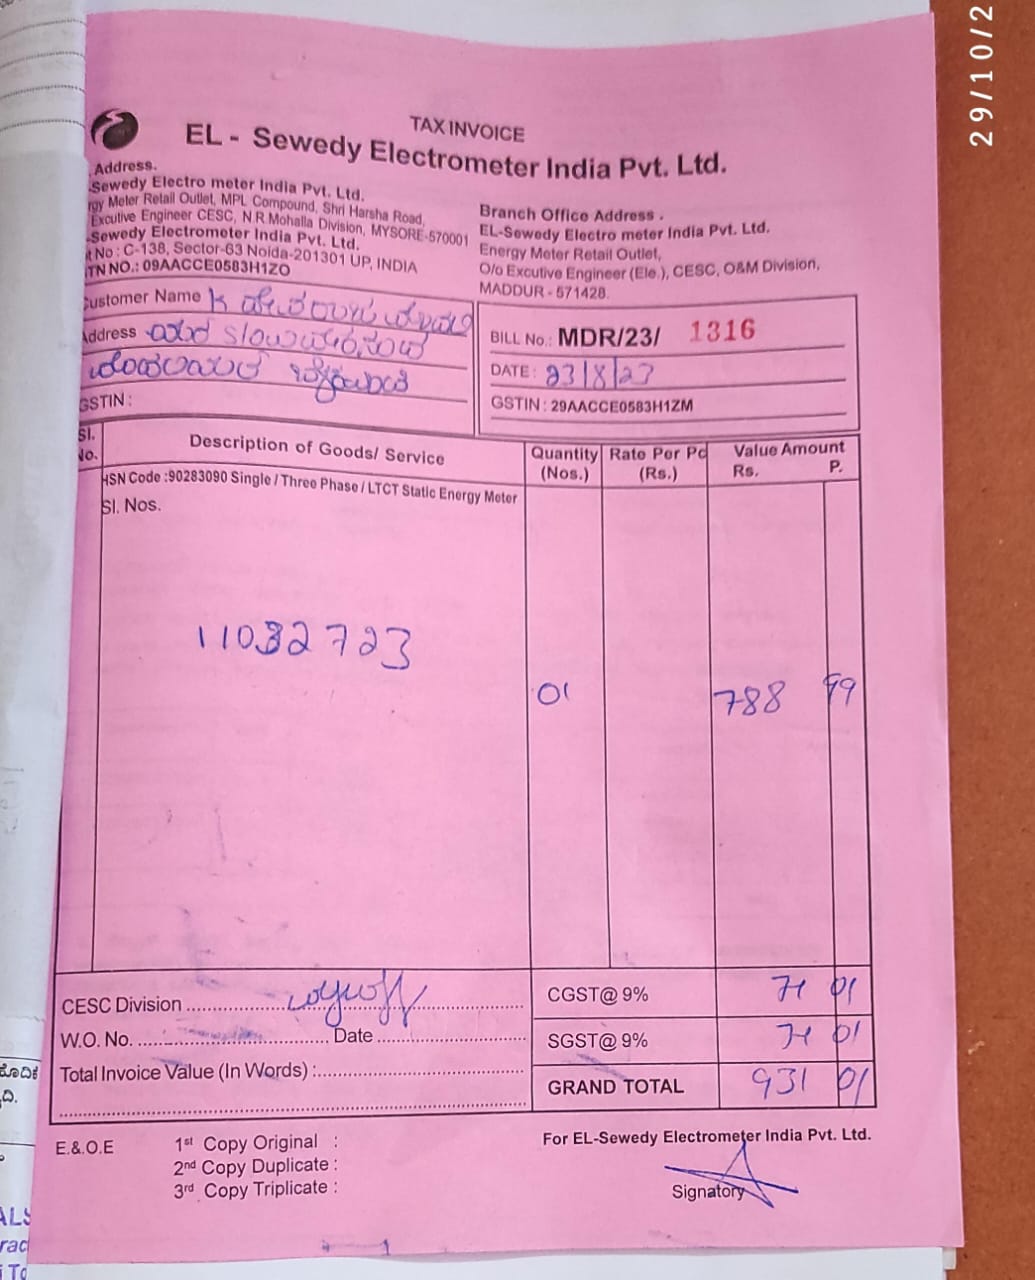 29/10/2
TAX INVOICE
EL - Sewedy Electrometer India Pvt. Ltd.
Address.
-Sewedy Electro meter India Pvt. Ltd.
rgy Meter Retail Outlet, MPL Compound, Shri Harsha Road,
Excutive Engineer CESC, N.R Mohalla Division, MYSORE-570001
-Sewedy Electrometer India Pvt. Ltd.
t No : C-138, Sector-63 Noida-201301 UP, INDIA
TN NO.: 09AACCE0583H1ZO
Branch Office Address .
EL-Sewedy Electro meter India Pvt. Ltd.
Energy Meter Retail Outlet,
O/o Excutive Engineer (Ele.), CESC, O&M Division,
MADDUR - 571428.
ustomer Name
Address
GSTIN :
BILL No.: MDR/23/ 1316
DATE : 23/8/23
GSTIN : 29AACCE0583H1ZM
Sl. No. Description of Goods/ Service Quantity (Nos.) Rate Per Pc (Rs.) Value Amount Rs. P.
HSN Code :90283090 Single / Three Phase / LTCT Static Energy Meter
Sl. Nos.
11032723
01 788 99
CESC Division CGST@ 9% 71 01
W.O. No. Date SGST@ 9% 71 01
Total Invoice Value (In Words) : GRAND TOTAL 931 01
E.&.O.E
1st Copy Original :
2nd Copy Duplicate :
3rd Copy Triplicate :
For EL-Sewedy Electrometer India Pvt. Ltd.
Signatory